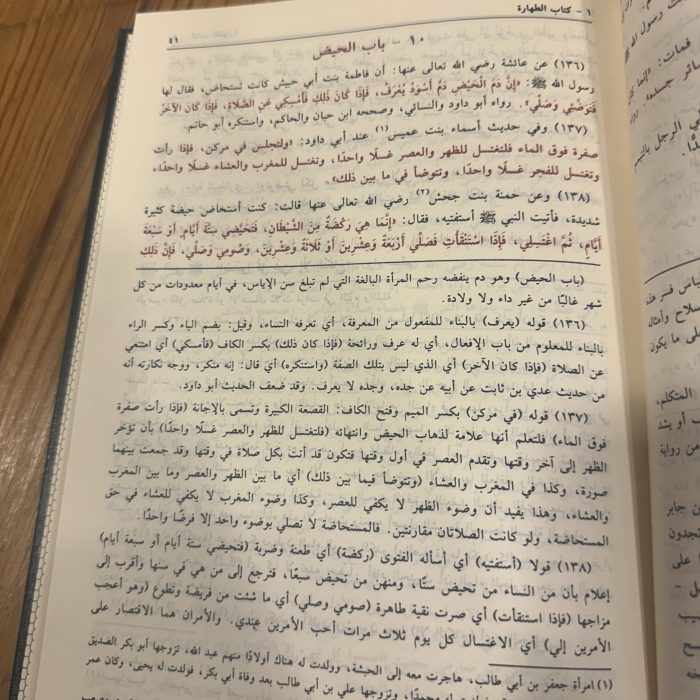 ١ - كتاب الطهارة
٤١
١٠ - باب الحيض
(١٣٦) عن عائشة رضي الله تعالى عنها: أن فاطمة بنت أبي حبيش كانت تستحاض، فقال لها
رسول الله ﷺ: «إِنَّ دَمَ الْحَيْضِ دَمٌ أَسْوَدُ يُعْرَفُ، فَإِذَا كَانَ ذَلِكَ فَأَمْسِكِي عَنِ الصَّلَاةِ، فَإِذَا كَانَ الْآخَرُ
فَتَوَضَّئِي وَصَلِّي». رواه أبو داود والنسائي، وصححه ابن حبان والحاكم، واستنكره أبو حاتم.
(١٣٧) وفي حديث أسماء بنت عميس (١) عند أبي داود: «ولتجلس في مركن، فإذا رأت
صفرة فوق الماء فلتغتسل للظهر والعصر غسلًا واحدًا، وتغتسل للمغرب والعشاء غسلًا واحدًا،
وتغتسل للفجر غسلًا واحدًا، وتتوضأ في ما بين ذلك».
(١٣٨) وعن حمنة بنت جحش(٢) رضي الله تعالى عنها قالت: كنت أستحاض حيضة كثيرة
شديدة، فأتيت النبي ﷺ أستفتيه، فقال: «إِنَّمَا هِيَ رَكْضَةٌ مِنَ الشَّيْطَانِ، فَتَحَيَّضِي سِتَّةَ أَيَّامٍ أَوْ سَبْعَةَ
أَيَّامٍ، ثُمَّ اغْتَسِلِي، فَإِذَا اسْتَنْقَأْتِ فَصَلِّي أَرْبَعَةً وَعِشْرِينَ أَوْ ثَلَاثَةً وَعِشْرِينَ، وَصُومِي وَصَلِّي، فَإِنَّ ذَلِكَ
(باب الحيض) وهو دم ينفضه رحم المرأة البالغة التي لم تبلغ سن الإياس، في أيام معدودات من كل
شهر غالبًا من غير داء ولا ولادة.
(١٣٦) قوله (يعرف) بالبناء للمفعول من المعرفة، أي تعرفه النساء، وقيل: بضم الياء وكسر الراء
بالبناء للمعلوم من باب الإفعال، أي له عرف ورائحة (فإذا كان ذلك) بكسر الكاف (فأمسكي) أي امتنعي
عن الصلاة (فإذا كان الآخر) أي الذي ليس بتلك الصفة (واستنكره) أي قال: إنه منكر، ووجه نكارته أنه
من حديث عدي بن ثابت عن أبيه عن جده، وجده لا يعرف. وقد ضعف الحديث أبو داود.
(١٣٧) قوله (في مركن) بكسر الميم وفتح الكاف: القصعة الكبيرة وتسمى بالإجانة (فإذا رأت صفرة
فوق الماء) فلتعلم أنها علامة لذهاب الحيض وانتهائه (فلتغتسل للظهر والعصر غسلًا واحدًا) بأن تؤخر
الظهر إلى آخر وقتها وتقدم العصر في أول وقتها فتكون قد أتت بكل صلاة في وقتها وقد جمعت بينهما
صورة، وكذا في المغرب والعشاء (وتتوضأ فيما بين ذلك) أي ما بين الظهر والعصر وما بين المغرب
والعشاء، وهذا يفيد أن وضوء الظهر لا يكفي للعصر، وكذا وضوء المغرب لا يكفي للعشاء في حق
المستحاضة، ولو كانت الصلاتان مقارنتين. فالمستحاضة لا تصلي بوضوء واحد إلا فرضًا واحدًا.
(١٣٨) قولا (أستفتيه) أي أسأله الفتوى (ركضة) أي طعنة وضربة (فتحيضي ستة أيام أو سبعة أيام)
إعلام بأن من النساء من تحيض ستًا، ومنهن من تحيض سبعًا، فترجع إلى من هي في سنها وأقرب إلى
مزاجها (فإذا استنقأت) أي صرت نقية طاهرة (صومي وصلي) أي ما شئت من فريضة وتطوع (وهو أعجب
الأمرين إلي) أي الاغتسال كل يوم ثلاث مرات أحب الأمرين عندي. والأمران هما الاقتصار على
(١) امرأة جعفر بن أبي طالب، هاجرت معه إلى الحبشة، وولدت له هناك أولادًا منهم عبد الله، تزوجها أبو بكر الصديق
وتزوجها علي بن أبي طالب بعد وفاة أبي بكر، فولدت له يحيى، وكان عمر